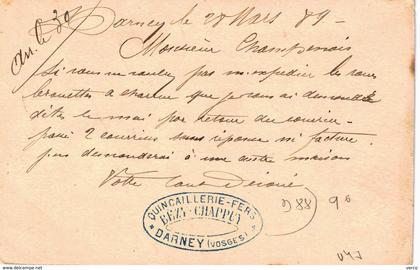 Darney le 28 Mars 89 -
au. le 30
Monsieur Champenois
Si vous ne voulez pas m'expédier les roues
brouettes à charrue que je vous ai demandé
dites le moi par retour du courrier
2 courriers sans réponse ni facture
je les demanderai à une autre maison
Votre tout dévoué
QUINCAILLERIE-FERS
BEZY-CHAPPUY
DARNEY (VOSGES)
988
9 6